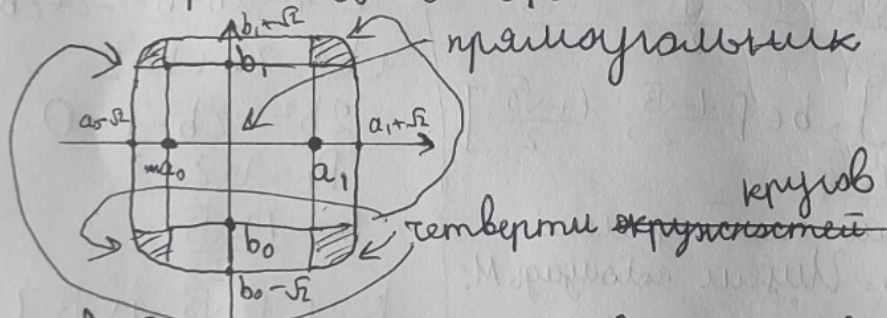 b₁+√2
прямоугольник
b₁
a₀-√2
a₁+√2
a₀
a₁
кругов
четверти окружностей
b₀
b₀-√2